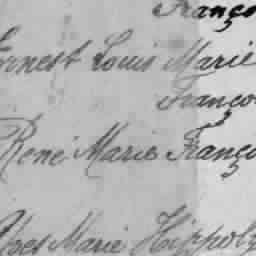 Franço
Ernest Louis Marie
Franço
René Marie Franço
Yves Marie Hippoly